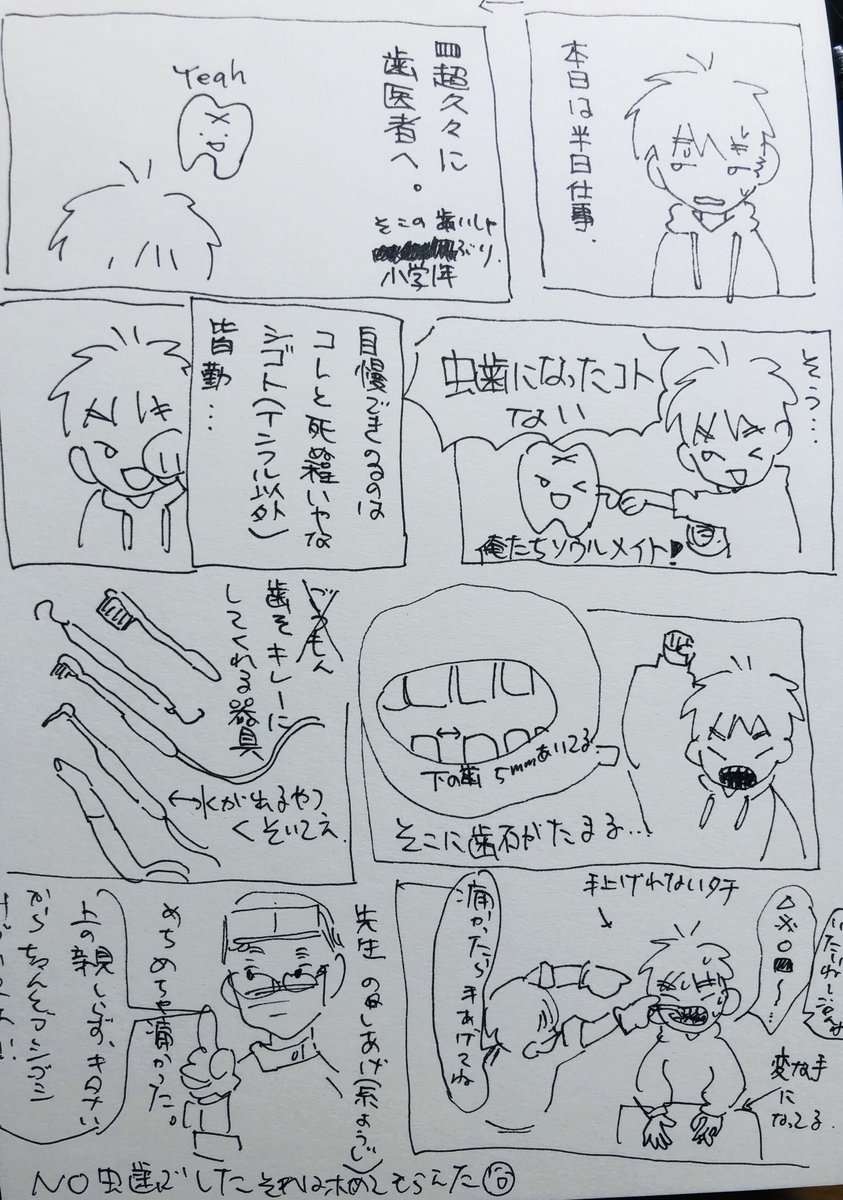 本日は半日仕事.
超久々に
歯医者へ。
そこの歯いしゃ
ぶり.
小学1年
Yeah
そう…
虫歯になったコト
ない
俺たちソウルメイト!
自慢できるのは
コレと死ぬ程いやな
シゴト(インフル以外)
皆勤…
下の歯 5mmあいてる
そこに歯石がたまる…
ごうもん
歯をキレーに
してくれる器具
←水が出るやつ
くそいてえ
手上げれないタチ
痛かったら手あげてね
△※○■〜…
変な手
になってる.
先生のしあげ(糸ようじ)
めちゃめちゃ痛かった。
上の親しらず、キタナい
から ちゃんとブラシ
NO虫歯でした それはほめてもらえた